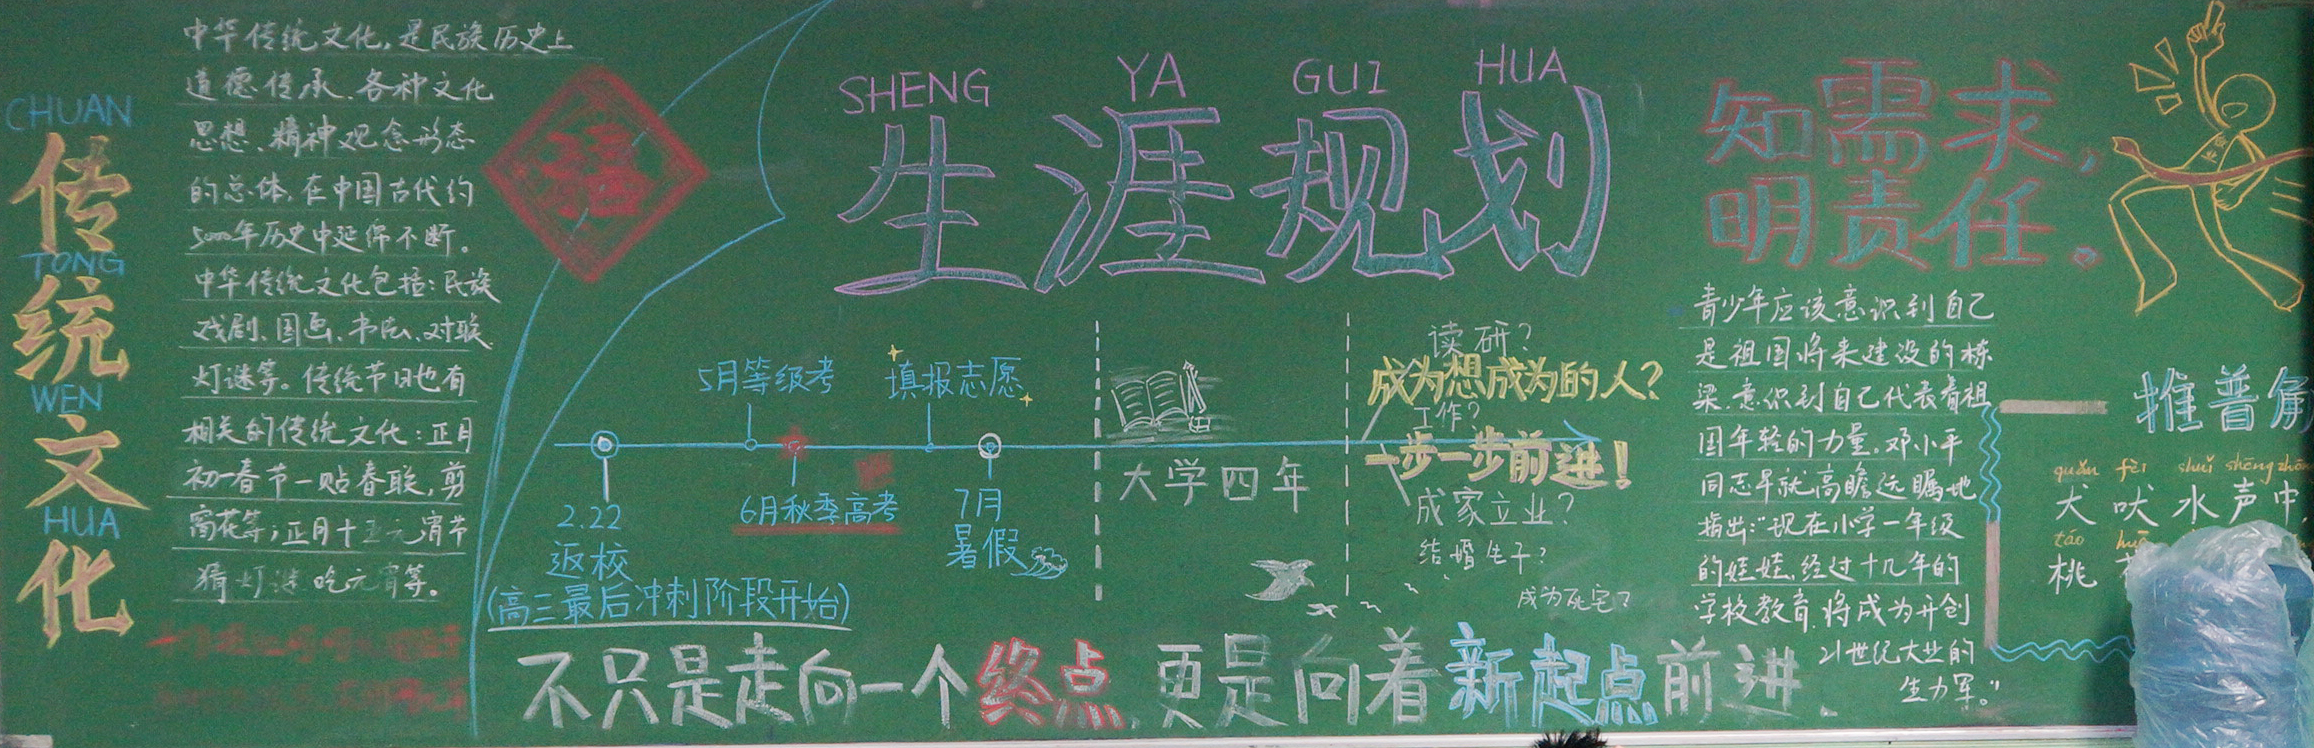 CHUAN
传
TONG
统
WEN
文
HUA
化
中华传统文化,是民族历史上
道德传承、各种文化
思想、精神观念形态
的总体,在中国古代约
5000年历史中延绵不断。
中华传统文化包括:民族
戏剧、国画、书法、对联
灯谜等。传统节日也有
相关的传统文化:正月
初一春节一贴春联,剪
窗花等;正月十五元宵节
猜灯谜吃元宵等。
福
SHENG YA GUI HUA
生涯规划
5月等级考
填报志愿
2.22
返校
(高三最后冲刺阶段开始)
6月秋季高考
7月
暑假
大学四年
读研?
成为想成为的人?
工作?
一步一步前进!
成家立业?
结婚生子?
成为死宅?
不只是走向一个终点,更是向着新起点前进.
知需求,
明责任。
青少年应该意识到自己
是祖国将来建设的栋
梁,意识到自己代表着祖
国年轻的力量。邓小平
同志早就高瞻远瞩地
指出:“现在小学一年级
的娃娃,经过十几年的
学校教育,将成为开创
21世纪大业的
生力军。”
推普角
quǎn fèi shuǐ shēng zhōn
犬吠水声中,
táo
桃